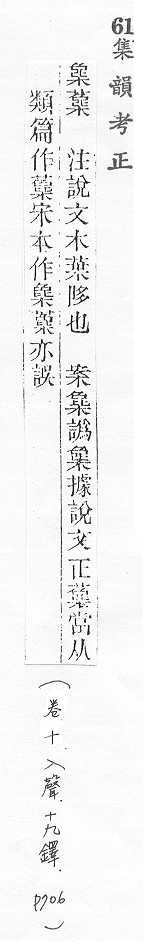 61 集韻考正
注說文木葉陊也　案譌據說文正當从
類篇作宋本作亦誤
（卷十、入聲、十九鐸、p706）